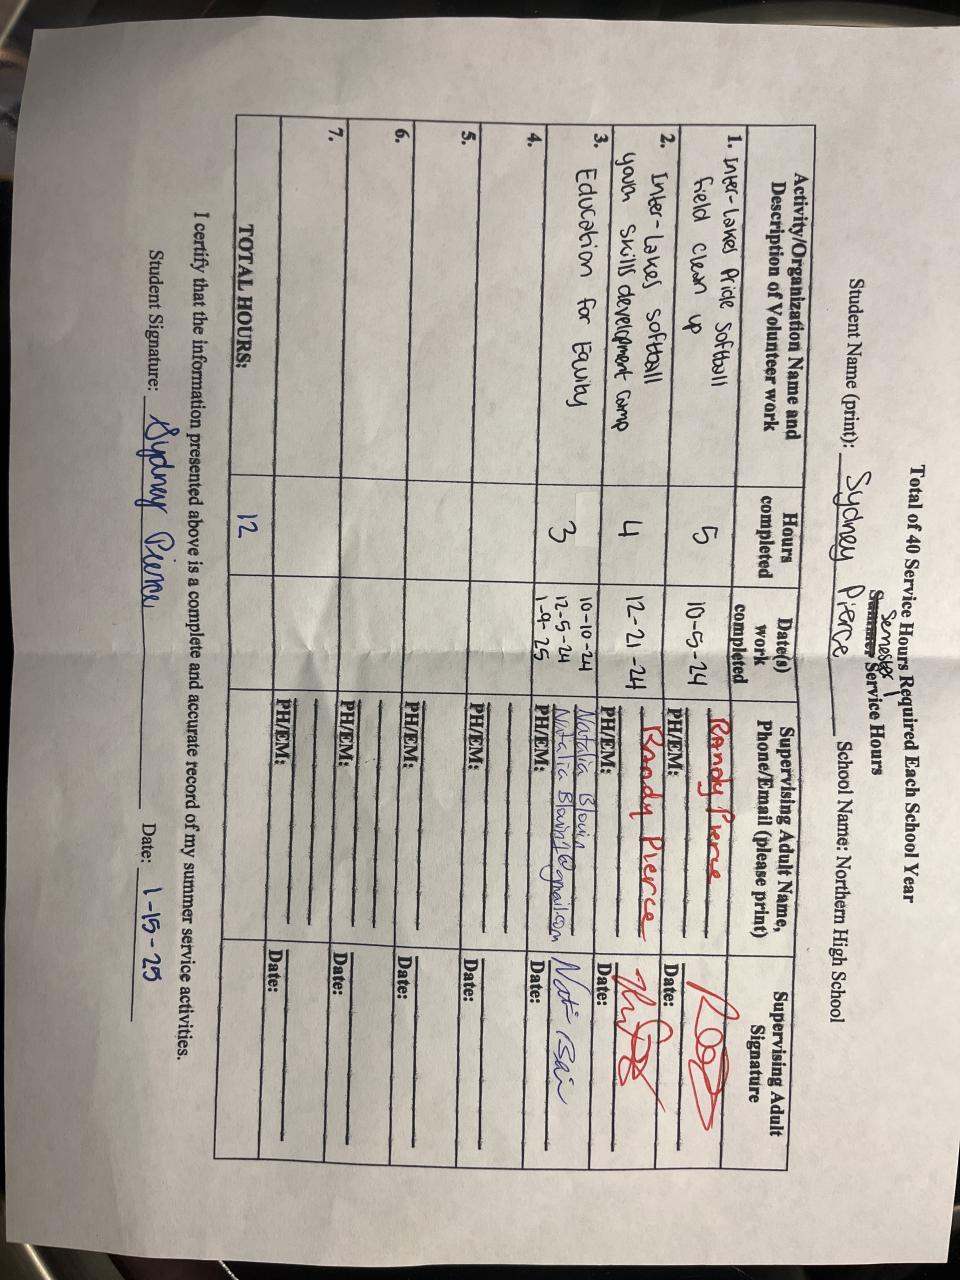 Total of 40 Service Hours Required Each School Year
Semester 1
Summer Service Hours
Student Name (print): Sydney Pierce School Name: Northern High School
Activity/Organization Name and Description of Volunteer work
Hours completed
Date(s) work completed
Supervising Adult Name, Phone/Email (please print)
Supervising Adult Signature
1. Inter-Lakes Pride Softball
field clean up
5
10-5-24
Randy Pierce
PH/EM:
Date:
2. Inter-Lakes softball
youth skills development camp
4
12-21-24
Randy Pierce
PH/EM:
Date:
3. Education for Equity
3
10-10-24
12-5-24
1-9-25
Natalia Blovin
PH/EM:
Date:
4.
PH/EM:
Date:
5.
PH/EM:
Date:
6.
PH/EM:
Date:
7.
PH/EM:
Date:
TOTAL HOURS:
12
I certify that the information presented above is a complete and accurate record of my summer service activities.
Student Signature: Sydney Pierce Date: 1-15-25